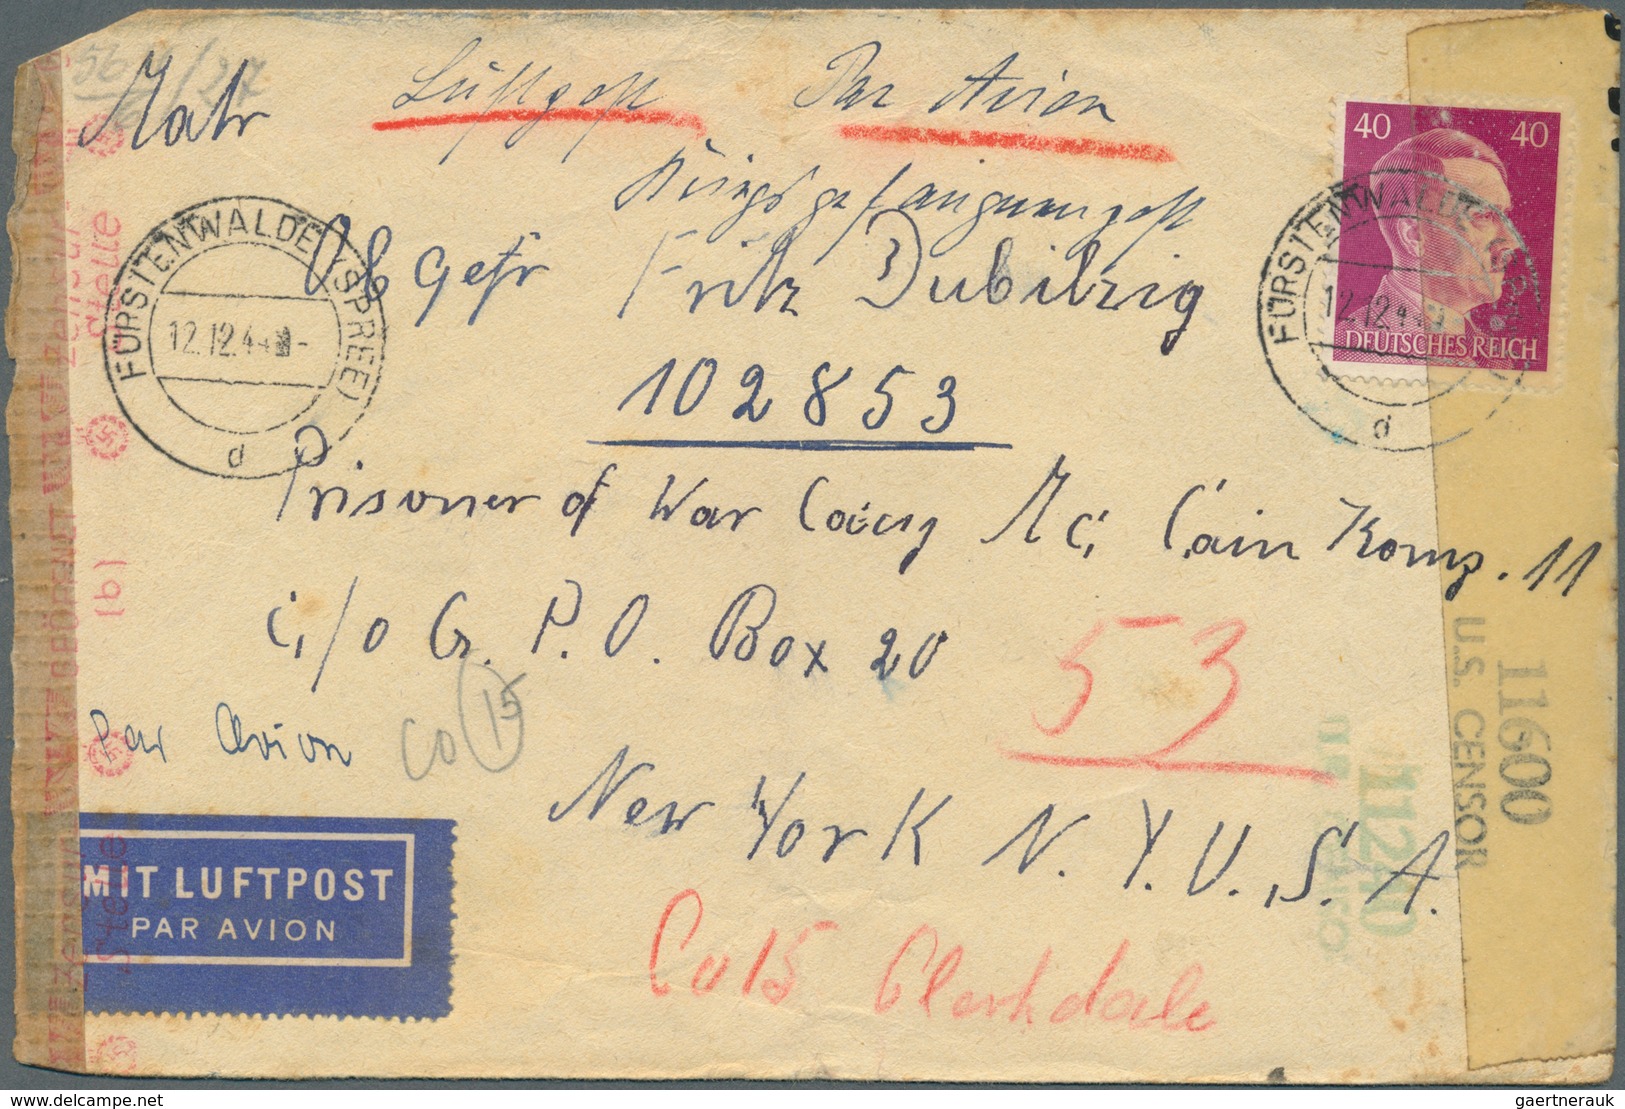 Luftpost Par Avion
40 40
Kriegsgefangenenpost
FÜRSTENWALDE (SPREE)
12.12.44
d
Obgefr Fritz Dubilzig
FÜRSTENWALDE (SPREE)
12.12.44
d
DEUTSCHES REICH
102853
Prisoner of War Mc. Cain Komp. 11
c/o G. P. O. Box 20
53
Par Avion CO 15
New York N. Y. U. S. A.
MIT LUFTPOST
PAR AVION
Co 15 Clarkdale
11600
U.S. CENSOR
11240
(b)
Stelle
Stelle
delcampe.net
gaertnerauk